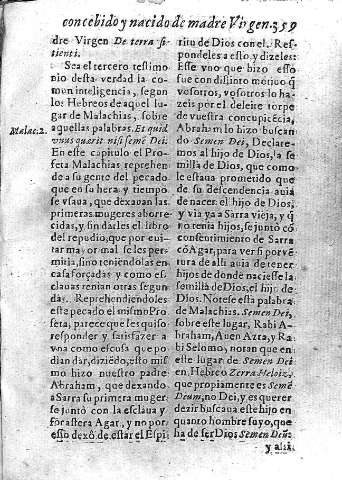 concebido y nacido de madre Virgen. 359
dre Virgen De terra si-
tienti.
Sea el tercero testimo
nio desta verdad la co
mun inteligencia, segun
los Hebreos de aquel lu-
gar de Malachias, sobre
Malac. 2.
aquellas palabras. Et quid
vnus quærit nisi semē Dei:
En este capitulo el Pro
feta Malachias reprehen
de a su gente del pecado
que en su hera y tiempo
se vsaua, que dexauan las
primeras mugeres aborre-
cidas, y sin darles el libro
del repudio, que por eui-
tar mayor mal se les per-
mitia, sino teniendolas en
casa forçadas y como es-
clauas tenian otras segun-
das. Reprehendiendoles
este pecado el mismo Pro
feta, parece que les quiso
responder y satisfazer a
vna como escusa que po
dian dar, diziēdo, esto mis
mo hizo nuestro padre
Abraham, que dexando
a Sarra su primera muger
se juntó con la esclaua y
forastera Agar, y no por
esso dexô de estar el Espi
ritu de Dios con el. Res-
pondeles a esso, y dizeles:
Esse vno que hizo esso
fue con distinto motiuo q̄
vosotros, vosotros lo ha-
zeis por el deleite torpe
de vuestra concupicēcia,
Abraham lo hizo buscan
do Semen Dei, Declare-
mos al Hijo de Dios, la se
milla de Dios, que como
le estaua prometido que
de su descendencia auia
de nacer el hijo de Dios,
y via ya a Sarra vieja, y q̄
no tenia hijos, se juntó cō
consentimiento de Sarra
cō Agar, para ver si por vē
tura de alli auia de tener
hijos de donde naciesse la
semilla de Dios, el hijo de
Dios. Notese esta palabra
de Malachias. Semen Dei,
sobre este lugar, Rabi A-
braham, Auen Azra, y Ra
bi Selomo, notan que en
este lugar de Semen Dei
en Hebreo Zerra Heloiz,
que propiamente es Semē
Deum, no Dei, y es querer
dezir buscaua este hijo en
quanto hombre suyo, que
ha de ser Dios Semen Deū:
y alli